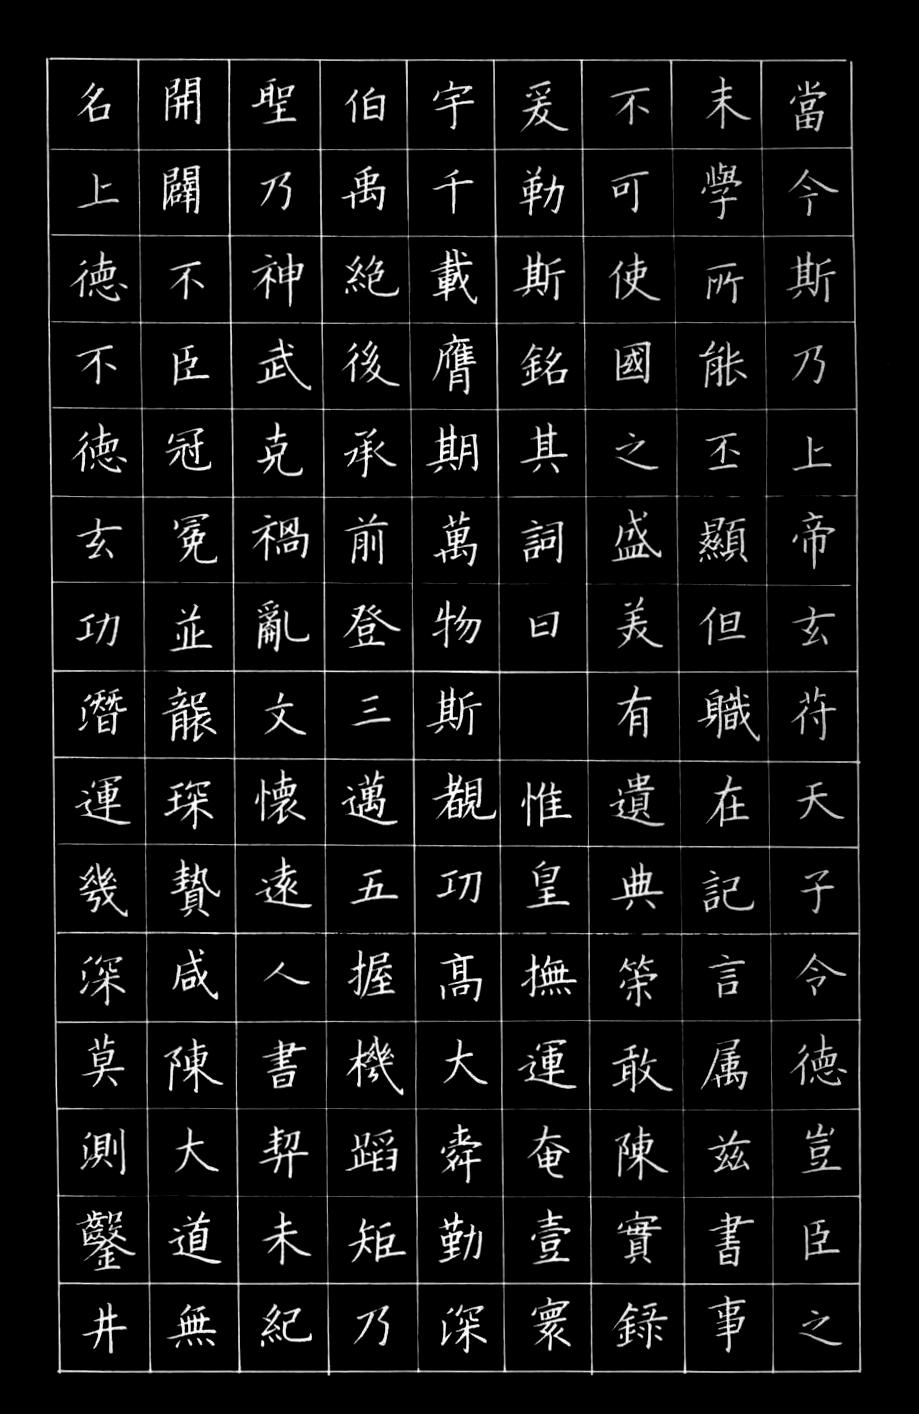 當今斯乃上帝玄苻天子令德豈臣之
末學所能丕顯但職在記言属兹書事
不可使國之盛美有遺典策敢陳實録
爰勒斯銘其詞曰 惟皇撫運奄壹寰
宇千載膺期萬物斯覩功高大舜勤深
伯禹絶後承前登三邁五握機蹈矩乃
聖乃神武克禍亂文懷遠人書契未紀
開闢不臣冠冕並襲琛贄咸陳大道無
名上德不德玄功潛運幾深莫測鑿井